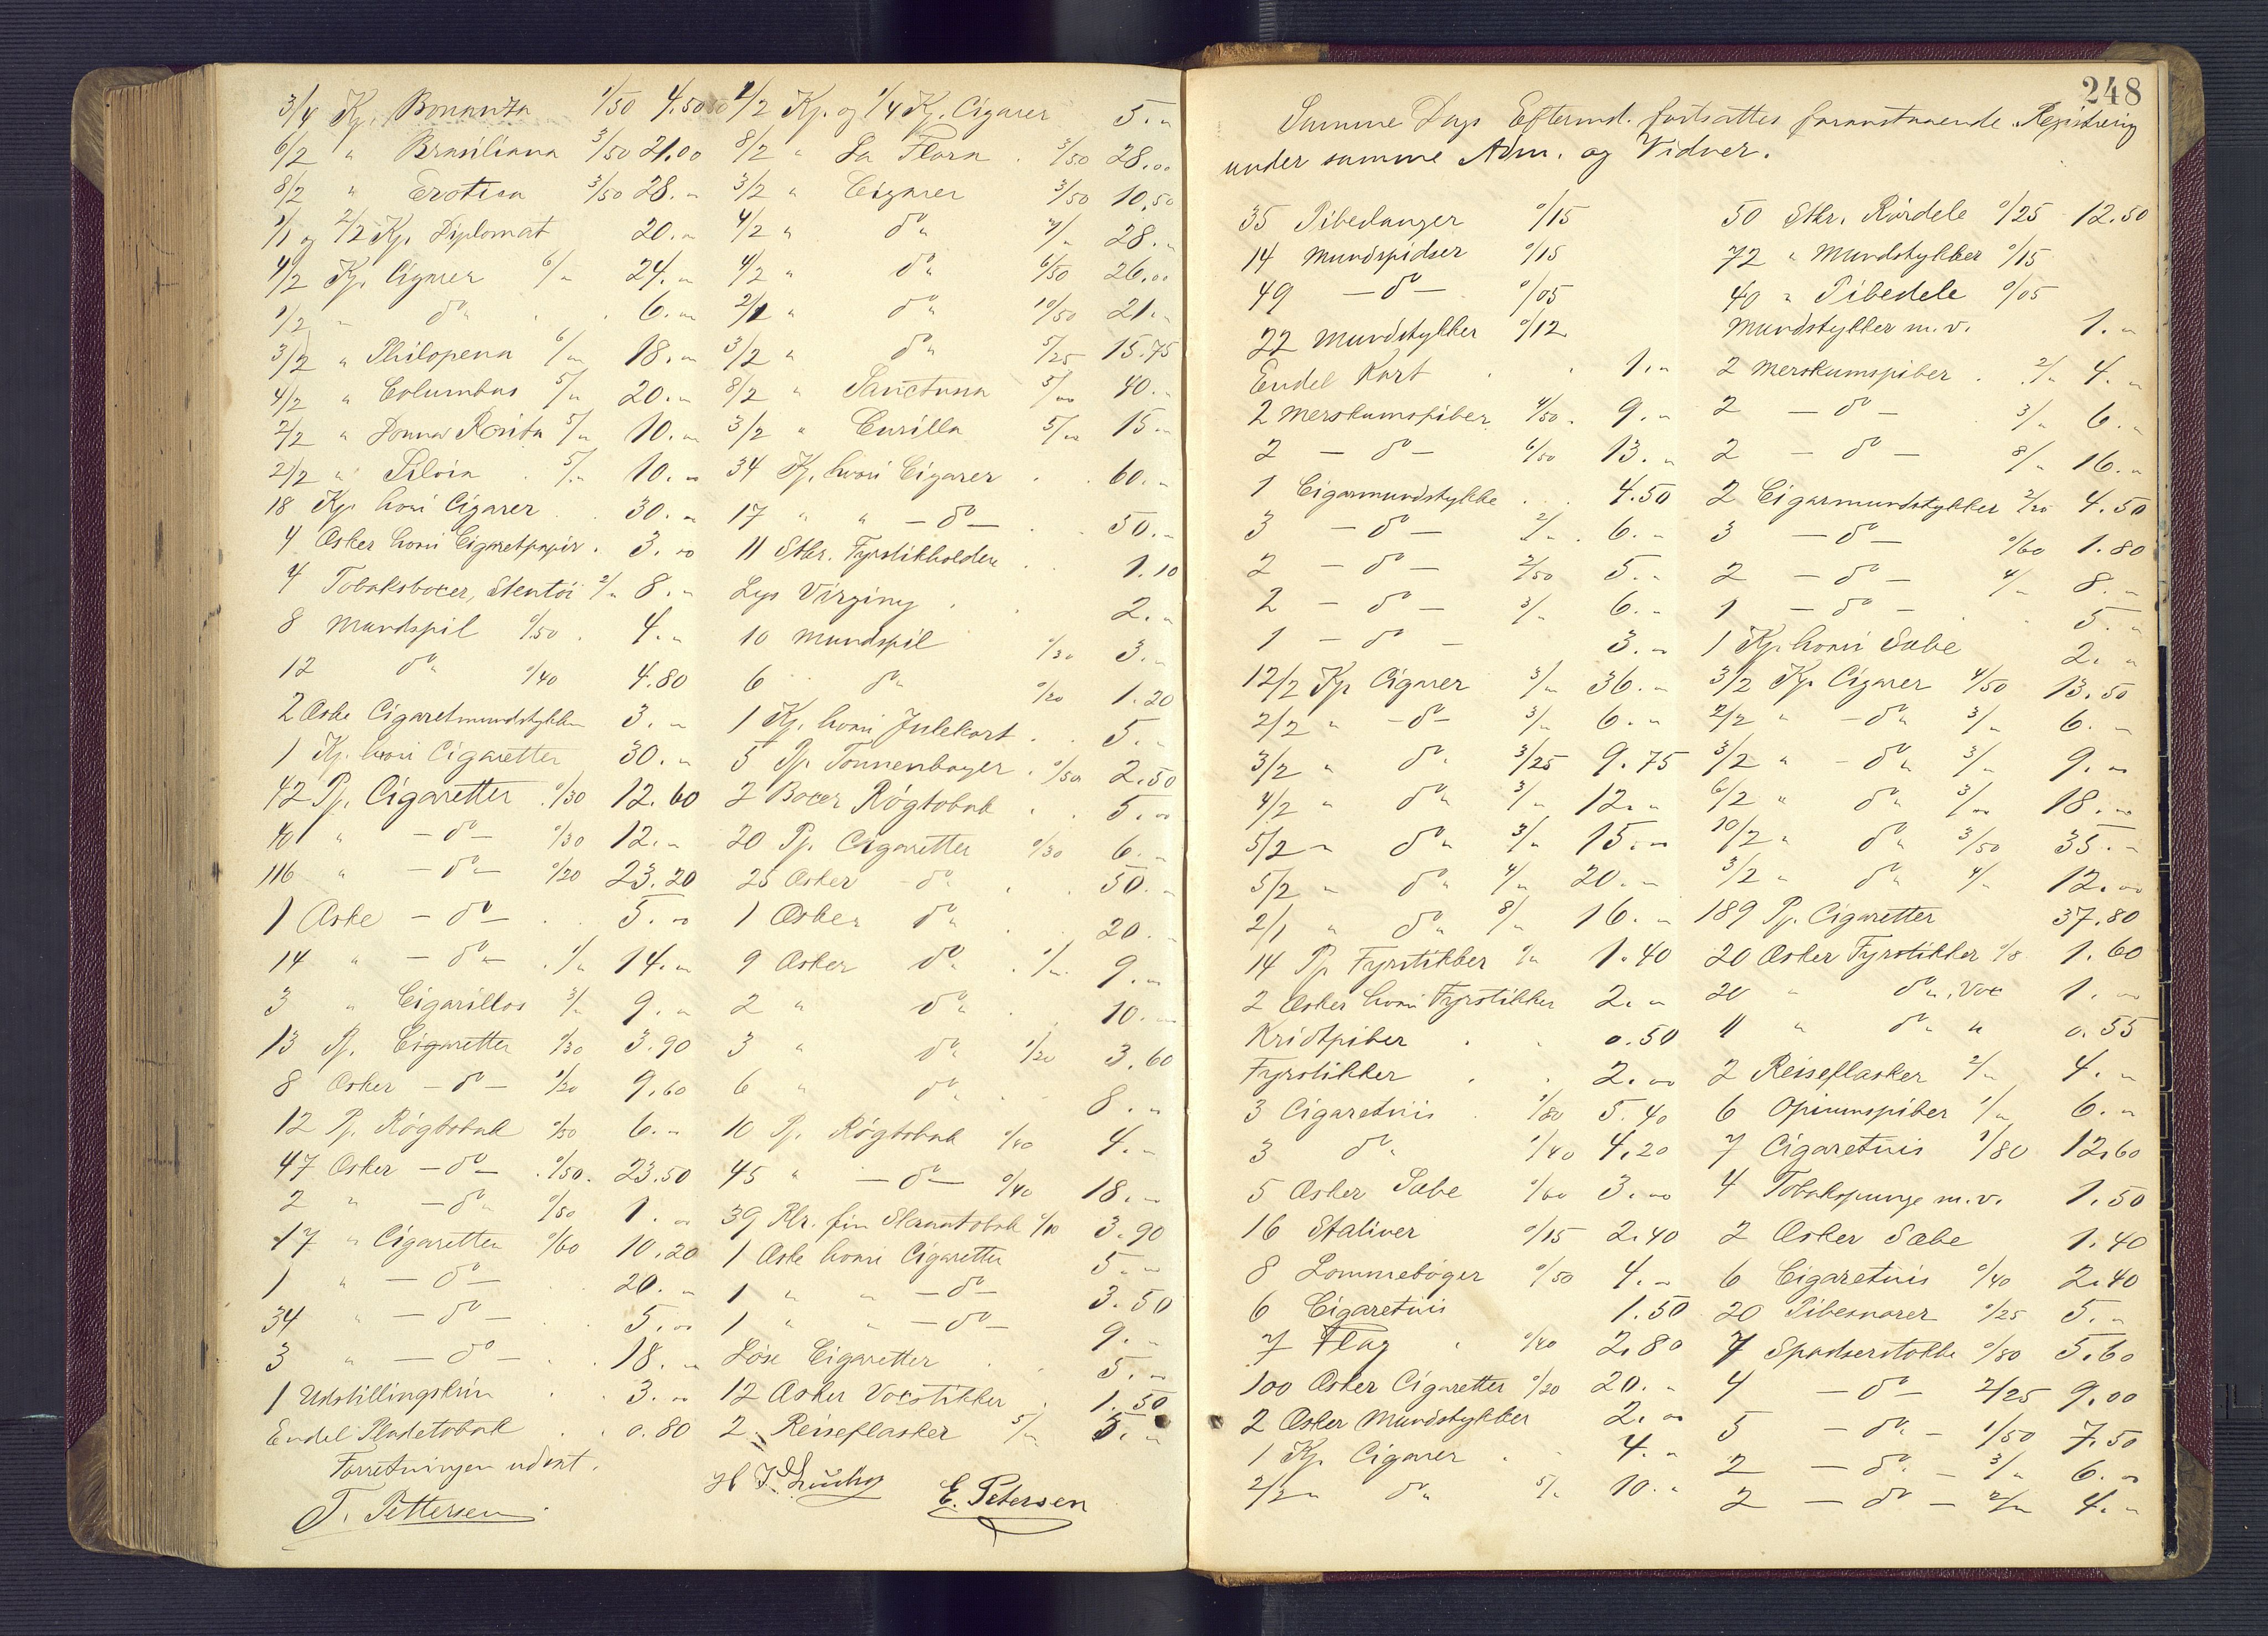 3/4 Kp. Bonanza 1/50 4.50
6/2 " Brasiliana 3/50 21.00
8/2 " Erotica 3/50 28. "
1/1 og 2/2 Kp. Diplomat 20. "
4/2 Kp. Cigarer 6/" 24. "
1/2 " do " 6. "
3/2 " Philopena 6/" 18. "
4/2 " Columbus 5/" 20. "
2/2 " Donna Rosita 5/" 10. "
2/2 " Silvia 5/" 10. "
18 Kp. hvori Cigarer 30. "
4 Æsker hvori Cigaretpapir. 3. "
4 Tobaksbocer, Stentöi 2/" 8. "
8 Mundspil 0/50 4. "
12 do " 0/40 4.80
2 Æske Cigaretmundstykker 3. "
1 Kp. hvori Cigaretter 30. "
42 Pp. Cigaretter 0/30 12.60
40 " - do - 0/30 12. "
116 " - do - 0/20 23.20
1 Æske - do - 5. "
14 " - do - 1/" 14. "
3 " Cigarillos 3/" 9. "
13 Pp. Cigaretter 0/30 3.90
8 Æsker - do - 1/20 9.60
12 Pp. Rögtobak 0/50 6. "
47 Æsker - do - 0/50. 23.50
2 " - do " 0/50 1. "
17 " Cigaretter 0/60 10.20
1 " - do - 20. "
34 " - do - 5. "
3 " - do - 18. "
1 Udstillingskrin 3. "
Endel Pladetobak 0.80
Forretningen udsat.
T. Pettersen
2/2 Kp. og 1/4 Kp. Cigarer 5. "
8/2 " La Flora 3/50 28. "
3/2 " Cigarer 3/50 10,50
4/2 " do " 7/" 28. "
4/2 " do " 6/50 26. "
2/1 " do " 10/50 21. "
3/2 " do " 5/25 15.75
8/2 " Sanctuna 5/" 40. "
3/2 " Curilla 5/" 15 "
34 Kp. hvori Cigarer 60. "
17 " " - do - 50. "
11 Stkr. Fyrstikholdere 1.10
Lys Virginy 2. "
10 Mundspil 0/30 3. "
6 do " 0/20 1.20
1 Kp. hvori Julekort 5. "
5 Pp. Tonnenboyer 0/50 2.50
2 Bocer Rögtobak 5. "
20 Pp. Cigaretter 0/30 6. "
25 Æsker - do " 50. "
1 Æsker do " 20. "
9 Æsker do " 1/" 9. "
2 " do " 10. "
3 " do " 1/20 3.60
6 " do " 8. "
10 Pp. Rögtobak 0/40 4. "
45 " - do - 0/40 18. "
39 Rlr. fin Skraatobak 0/10 3.90
1 Æske hvori Cigaretter 5. "
1 " " - do - 3.50
1 " " - do - 9. "
Löse Cigaretter 5. "
12 Æsker Vocstikker 1.50
2 Reiseflasker 5/" 5. "
E. Petersen
248
Samme Dags Eftermd. fortsattes foranstaaende Registrering
under samme Adm. og Vidner.
35 Pibeslanger 0/15
14 Mundspidser 0/15
49 - do - 0/05
22 Mundstykker 0/12
Endel Kort 1. "
2 Merskumspiber 4/50 9. "
2 - do - 6/50 13. "
1 Cigarmundstykke 4.50
3 - do - 2/" 6. "
2 - do - 2/50 5. "
2 - do - 3/" 6. "
1 - do - 3. "
12/2 Kp. Cigarer 3/" 36. "
2/2 " - do - 3/" 6. "
3/2 " do " 3/25 9.75
4/2 " do " 3/" 12. "
5/2 " do " 3/" 15. "
5/2 " do " 4/" 20. "
2/1 " do " 8/" 16. "
14 Pp. Fyrstikker 0/" 1.40
2 Æsker hvori Fyrstikker 2. "
Kridtpiber 0.50
Fyrstikker 2. "
3 Cigaretuis 1/80 5.40
3 do " 1/40 4.20
5 Æsker Sæbe 0/60 3. "
16 Stativer 0/15 2.40
8 Lommebøger 0/50 4. "
6 Cigaretuis 1.50
7 Flag 0/40 2.80
100 Æsker Cigaretter 0/20 20. "
2 Æsker Mundstykker 2. "
1 Kp. Cigarer 4. "
2/2 " do " 5/" 10. "
50 Stkr. Rördele 0/25 12.50
72 " Mundstykker 0/15
40 " Pibedele 0/05
Mundstykker m.v. 1. "
2 Merskumspiber 2/" 4. "
2 - do - 3/" 6. "
2 - do - 8/" 16. "
2 Cigarmundstykker 2/20 4.50
3 - do - 0/60 1.80
2 - do - 4/" 8. "
1 - do - 5. "
1 Kp. hvori Sæbe 2. "
3/2 Kp. Cigarer 4/50 13.50
2/2 " - do " 3/" 6. "
3/2 " - do " 3/" 9. "
6/2 " do " 3/" 18. "
10/2 " do " 3/50 35. "
3/2 " do " 4/" 12. "
189 Pp. Cigaretter 37.80
20 Æsker Fyrstikker 0/8 1.60
20 " do ", Voc 1. "
11 " do " " 0.55
2 Reiseflasker 2/" 4. "
6 Opiumspiber 1/" 6. "
7 Cigaretuis 1/80 12.60
4 Tobakspunge m.v. 1.50
2 Æsker Sæbe 1.40
6 Cigaretuis 0/40 2.40
20 Pibesnorer 0/25 5. "
7 Spadserstokke 0/80 5.60
4 - do - 2/25 9.00
5 - do " - 1/50 7.50
2 - do " - 3/" 6. "
2 - do - 2/" 4. "